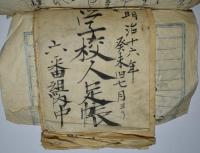 明治十六年
癸未旧七月ヨリ
学校人足帳
六番組中